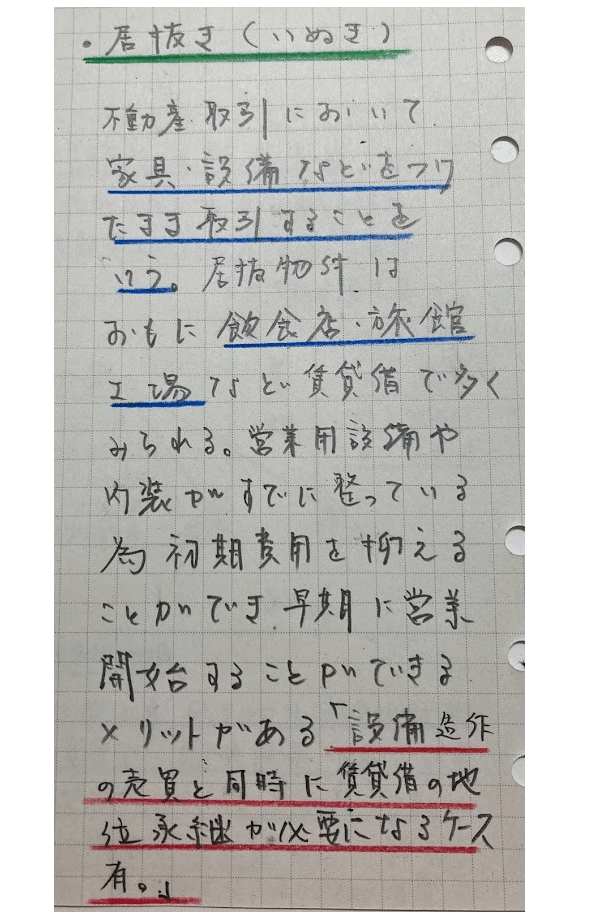 ・居抜き(いぬき)
不動産取引において
家具・設備などをつけ
たまま取引することを
いう。居抜物件は
おもに飲食店・旅館
工場など賃貸借で多く
みられる。営業用設備や
内装がすでに整っている
為初期費用を抑える
ことができ早期に営業
開始することができる
メリットがある「設備造作
の売買と同時に賃貸借の地
位承継が必要になるケース
有。」